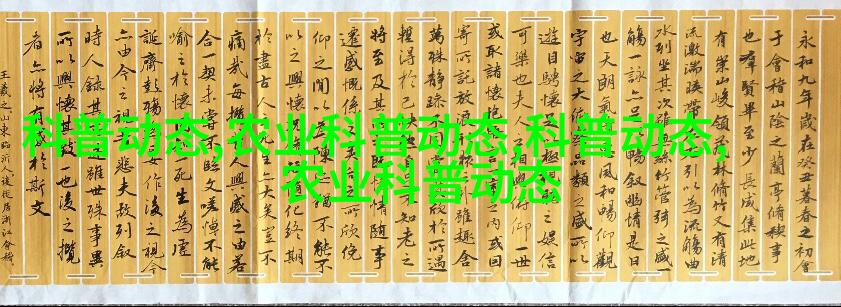 科普动态,农业科普动态,科普动态,
农业科普动态
永和九年歲在癸丑暮春之初會
于會稽山陰之蘭亭脩稧事
也群賢畢至少長咸集此地
有崇山峻領茂林脩竹又有清
流激湍暎帶引以為流觴曲
水列坐其次雖絲竹管弦之盛一
觴一詠亦足暢敘幽情是日
也天朗氣風和暢仰觀
宇宙之大俯類之盛所以
遊目騁懷極視聽之娛信
可樂也夫人之俯仰一世
或取諸懷抱之內或因
寄所託放浪雖趣舍
萬殊靜躁欣於所遇
暫得於己快不知老之
將至及其既情隨事
遷感慨係之矣所欣俛
仰之間以為陳猶不能不
以之興懷況化終期
於盡古人大矣豈不
痛哉每攬人興感之由若
合一契未嘗不臨文嗟悼不能
喻之於懷死生為虛
誕齊彭殤妄作後之視今
亦由今之視悲夫故列敘
時人錄其雖世殊事異
所以興懷其致一也後之攬
者亦將有於斯文
王羲之山東臨沂人後徙居浙江會稽